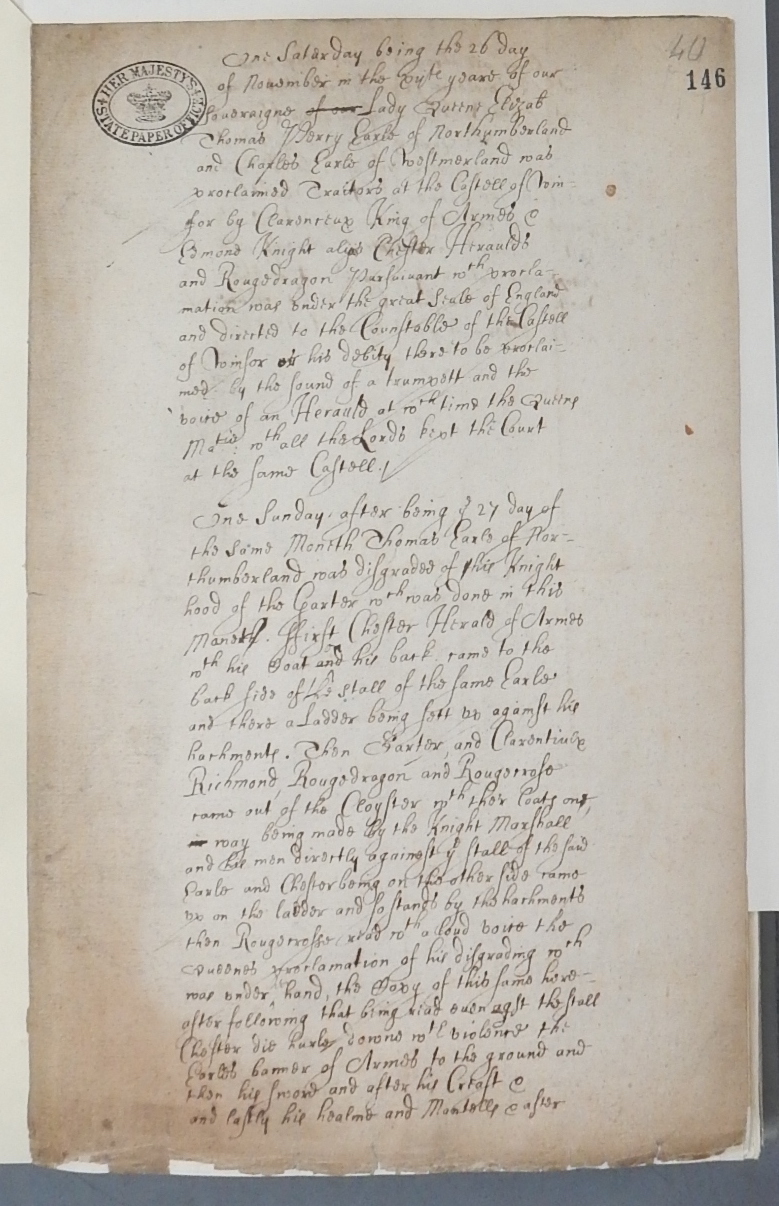 40
146
HER MAJESTY'S STATE PAPER OFFICE
One Saturday being the 26 day
of November in the xijte yeare of our
Soveraigne of our Lady Queene Elizab
Thomas Percy Earle of Northumberland
and Charles Earle of Westmerland was
proclaimed Traitors at the Castell of Win-
sor by Clarenceux King of Armes &
Edmond Knight alias Chester Heraulds
and Rougedragon Pursuivant wth procla-
mation was under the great Seale of England
and directed to the Counstable of the Castell
of Winsor or his debity there to be proclai-
med by the sound of a trumpett and the
voice of an Herauld at wch time the Queens
Matie: wth all the Lords kept the Court
at the same Castell.
One Sunday after being ye 27 day of
the same Moneth Thomas Earle of Nor-
thumberland was disgraded of his Knight
hood of the Garter wch was done in this
Maner. ffirst Chester Herald of Armes
wth his Coat and his back came to the
back side of the stall of the same Earle
and there a Ladder being sett up against his
hachments. Then Garter and Clarentieux
Richmond, Rougedragon and Rougecrosse
came out of the Cloyster wth ther Coats one,
in way being made by the Knight Marshall
and his men directly against ye stall of the said
Earle and Chester being on the other side came
up on the ladder and so stands by the hachments
then Rougecrosse read wth a loud voice the
Queenes proclamation of his disgrading wch
was under hand, the Copy of this same here-
after following that being read even agst the stall
Chester did hurle downe wth violence the
Earles banner of Armes to the ground and
then his sword and after his Creast &
and lastly his healme and Mantells & after